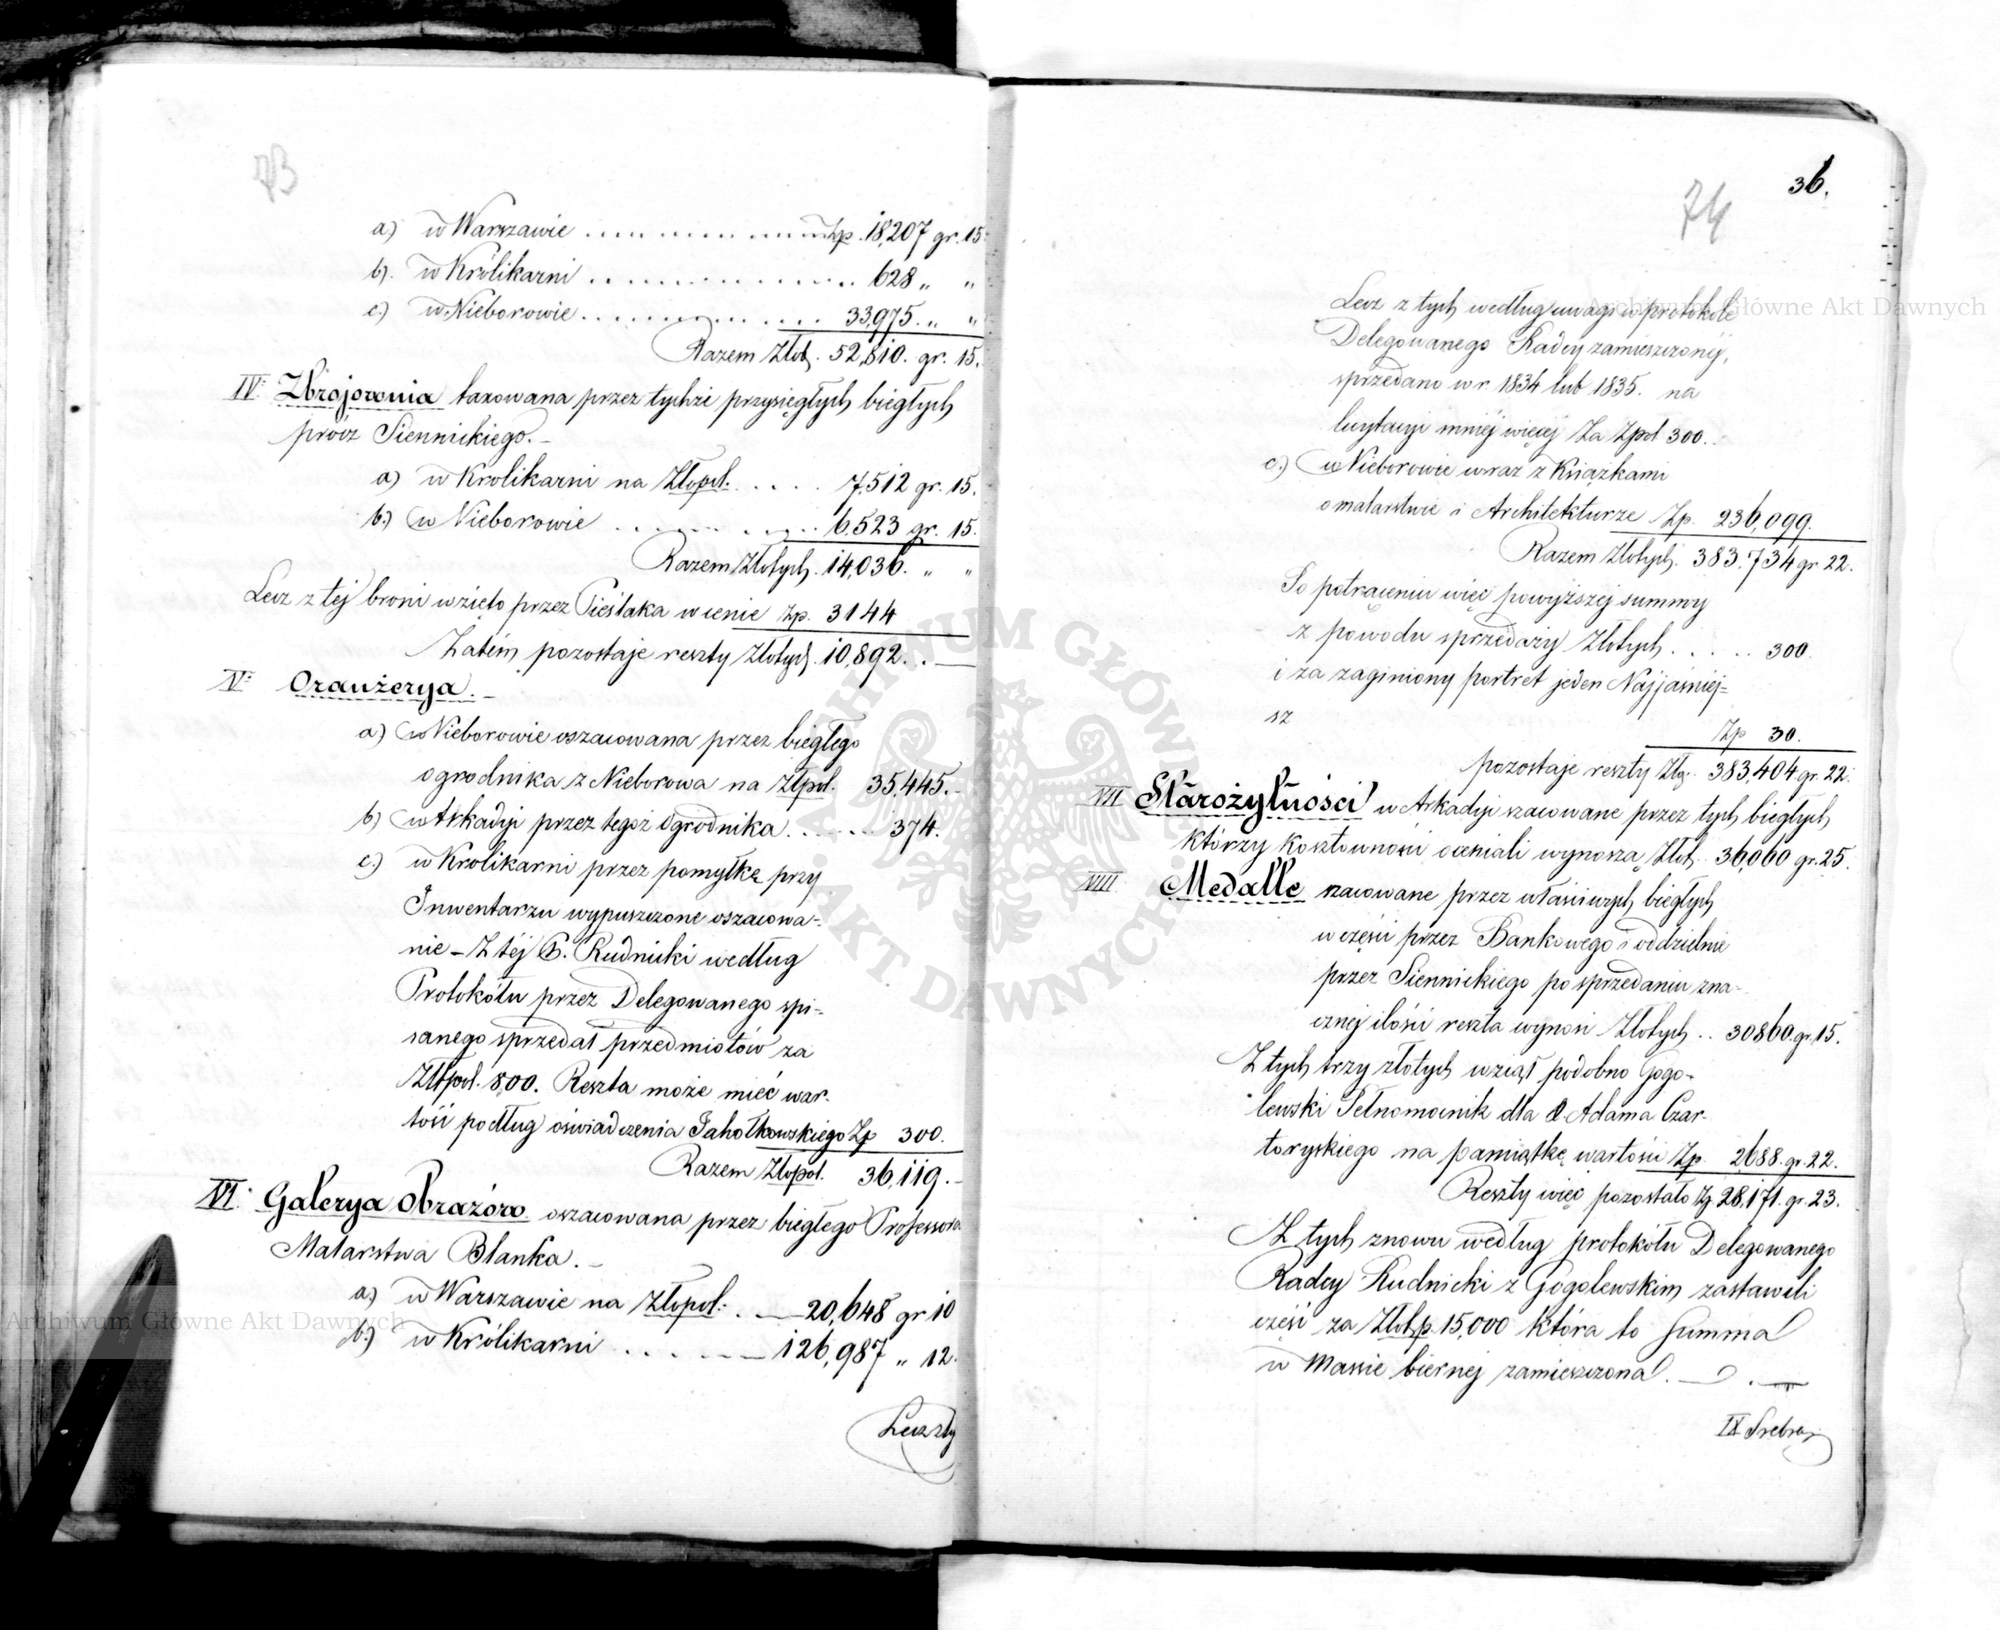 73
a) w Warszawie . . . . . . . . . . . . Zp. 18,207 gr. 15.
b). w Królikarni . . . . . . . . . . . . 628 „ „
c.) w Nieborowie . . . . . . . . . . . . 33,975. „ „
Razem Złot. 52,810. gr. 15.
IV. Zbrojownia taxowana przez tychże przysięgłych biegłych
prócz Siennickiego. -
a) w Krolikarni na Złopol. . . . . 7,512 gr. 15.
b.) w Nieborowie . . . . . . . 6,523 gr. 15.
Razem Złotych. 14,036. „ „
Lecz z tej broni wzięto przez Cieślaka w cenie Zp. 3144
Zatém pozostaje reszty Złotych. 10,892. . —
V. Oranżerya. -
a) w Nieborowie oszacowana przez biegłego
ogrodnika z Nieborowa na Złpol. 35,445. -
b) w Arkadyi przez tegoż Ogrodnika . . . . . . 374.
c.) w Krolikarni przez pomyłkę przy
Inwentarzu wypuszczone oszacowa-
nie – Z téj P. Rudnicki według
Protokółu przez Delegowanego spi-
sanego sprzedał przedmiotów za
Złtpol. 800. Reszta może mieć war-
tość podług oświadczenia Jahołkowskiego Zp 300.
Razem Złopol. 36,119. -
VI. Galerya Obrazów oszacowana przez biegłego Professora
Malarstwa Blanka. -
a) w Warszawie na Złopol. . — 20,648 gr 10
b.) w Królikarni . . . . . — 126,987 „ 12.
Lecz z ty
36.
74
Lecz z tych według uwagi w protokole
Delegowanego Radcy zamieszczonéj,
sprzedano w r. 1834 lub 1835. na
licytacyi mniéj więcej za Zpol 300. -
c.) w Nieborowie wraz z Książkami
o malarstwie i Architekturze Zp. 236,099.
Razem Złotych. 383,734 gr 22.
Po potrąceniu więc powyższej summy
z powodu sprzedaży Złotych . . . . . 300.
i za zaginiony portret jeden Najjaśniej=
sz
Zp 30.
pozostaje reszty Złp. 383,404. gr. 22.
VII Starożytności w Arkadyi szacowane przez tych biegłych
którzy kosztowności oceniali wynoszą Złot. 36,060 gr. 25.
VIII. Medalle szacowane przez właściwych biegłych
w części przez Bankowego i oddzielnie
przez Siennickiego po sprzedaniu zna-
cznej ilości reszta wynosi Złotych . . 30860. gr. 15.
Z tych trzy złotych wziął podobno Gogo-
lewski Pełnomocnik dla X Adama Czar-
toryskiego na pamiątkę wartości Zp. 2688. gr. 22.
Reszty więc pozostało Zp 28,171. gr. 23.
Z tych znowu według protokółu Delegowanego
Radcy Rudnicki z Gogolewskim zastawili
część za Złot.p. 15,000 która to Summa
w massie biernej zamieszczona. —
IX Srebra
Archiwum Główne Akt Dawnych
Archiwum Główne Akt Dawnych
ARCHIWUM GŁÓWNE AKT DAWNYCH